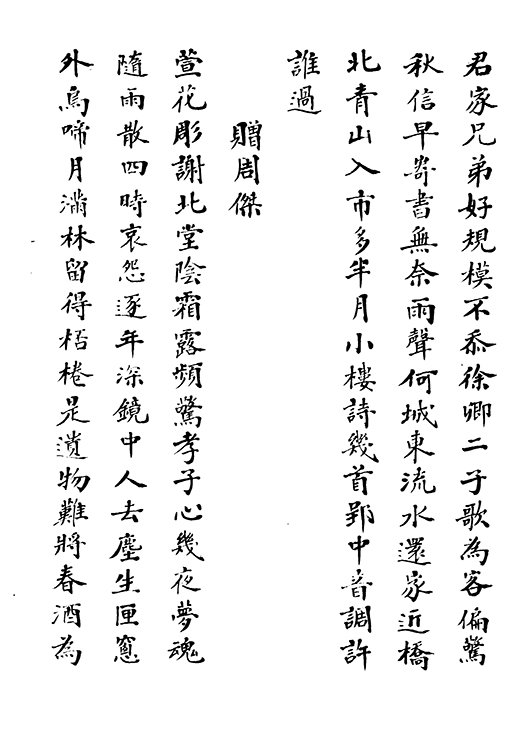 君家兄弟好規模不忝徐卿二子歌為客偏驚
秋信早寄書無奈雨聲何城東流水還家近橋
北青山入市多半月小樓詩幾首郢中音調許
誰過
贈周傑
萱花彫謝北堂陰霜露頻驚孝子心幾夜夢魂
隨雨散四時哀怨逐年深鏡中人去塵生匣窻
外烏啼月滿林留得桮棬是遺物難將春酒為